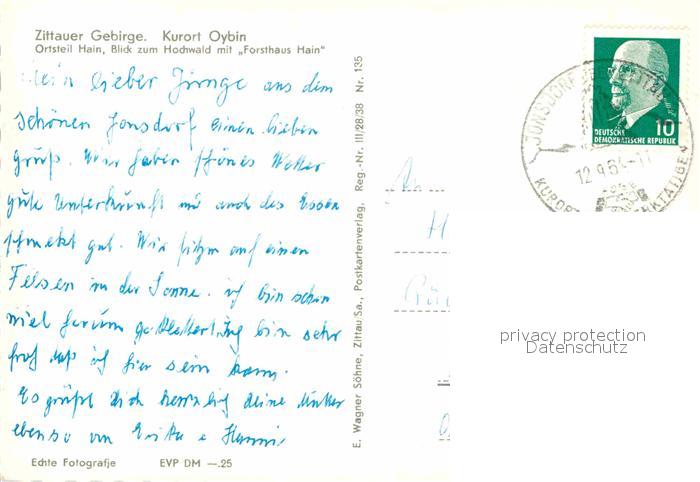 Zittauer Gebirge. Kurort Oybin
Ortsteil Hain, Blick zum Hochwald mit „Forsthaus Hain"
Mein lieber Junge aus dem
schönen Jonsdorf einen lieben
Gruß. Wir haben schönes Wetter
gute Unterkunft und auch das Essen
schmekt gut. Wir sitzen auf einen
Felsen in der Sonne. ich bin schon
viel herum geklettert, bin sehr
froh daß ich hier sein kann.
Es grüßt dich herzlich deine Mutter
ebenso von
Echte Fotografie EVP DM —.25
E. Wagner Söhne, Zittau/Sa., Postkartenverlag, Reg.-Nr. III/28/38 Nr. 135
DEUTSCHE
DEMOKRATISCHE REPUBLIK
10
JONSDORF
12.9.64
KURORT
privacy protection
Datenschutz